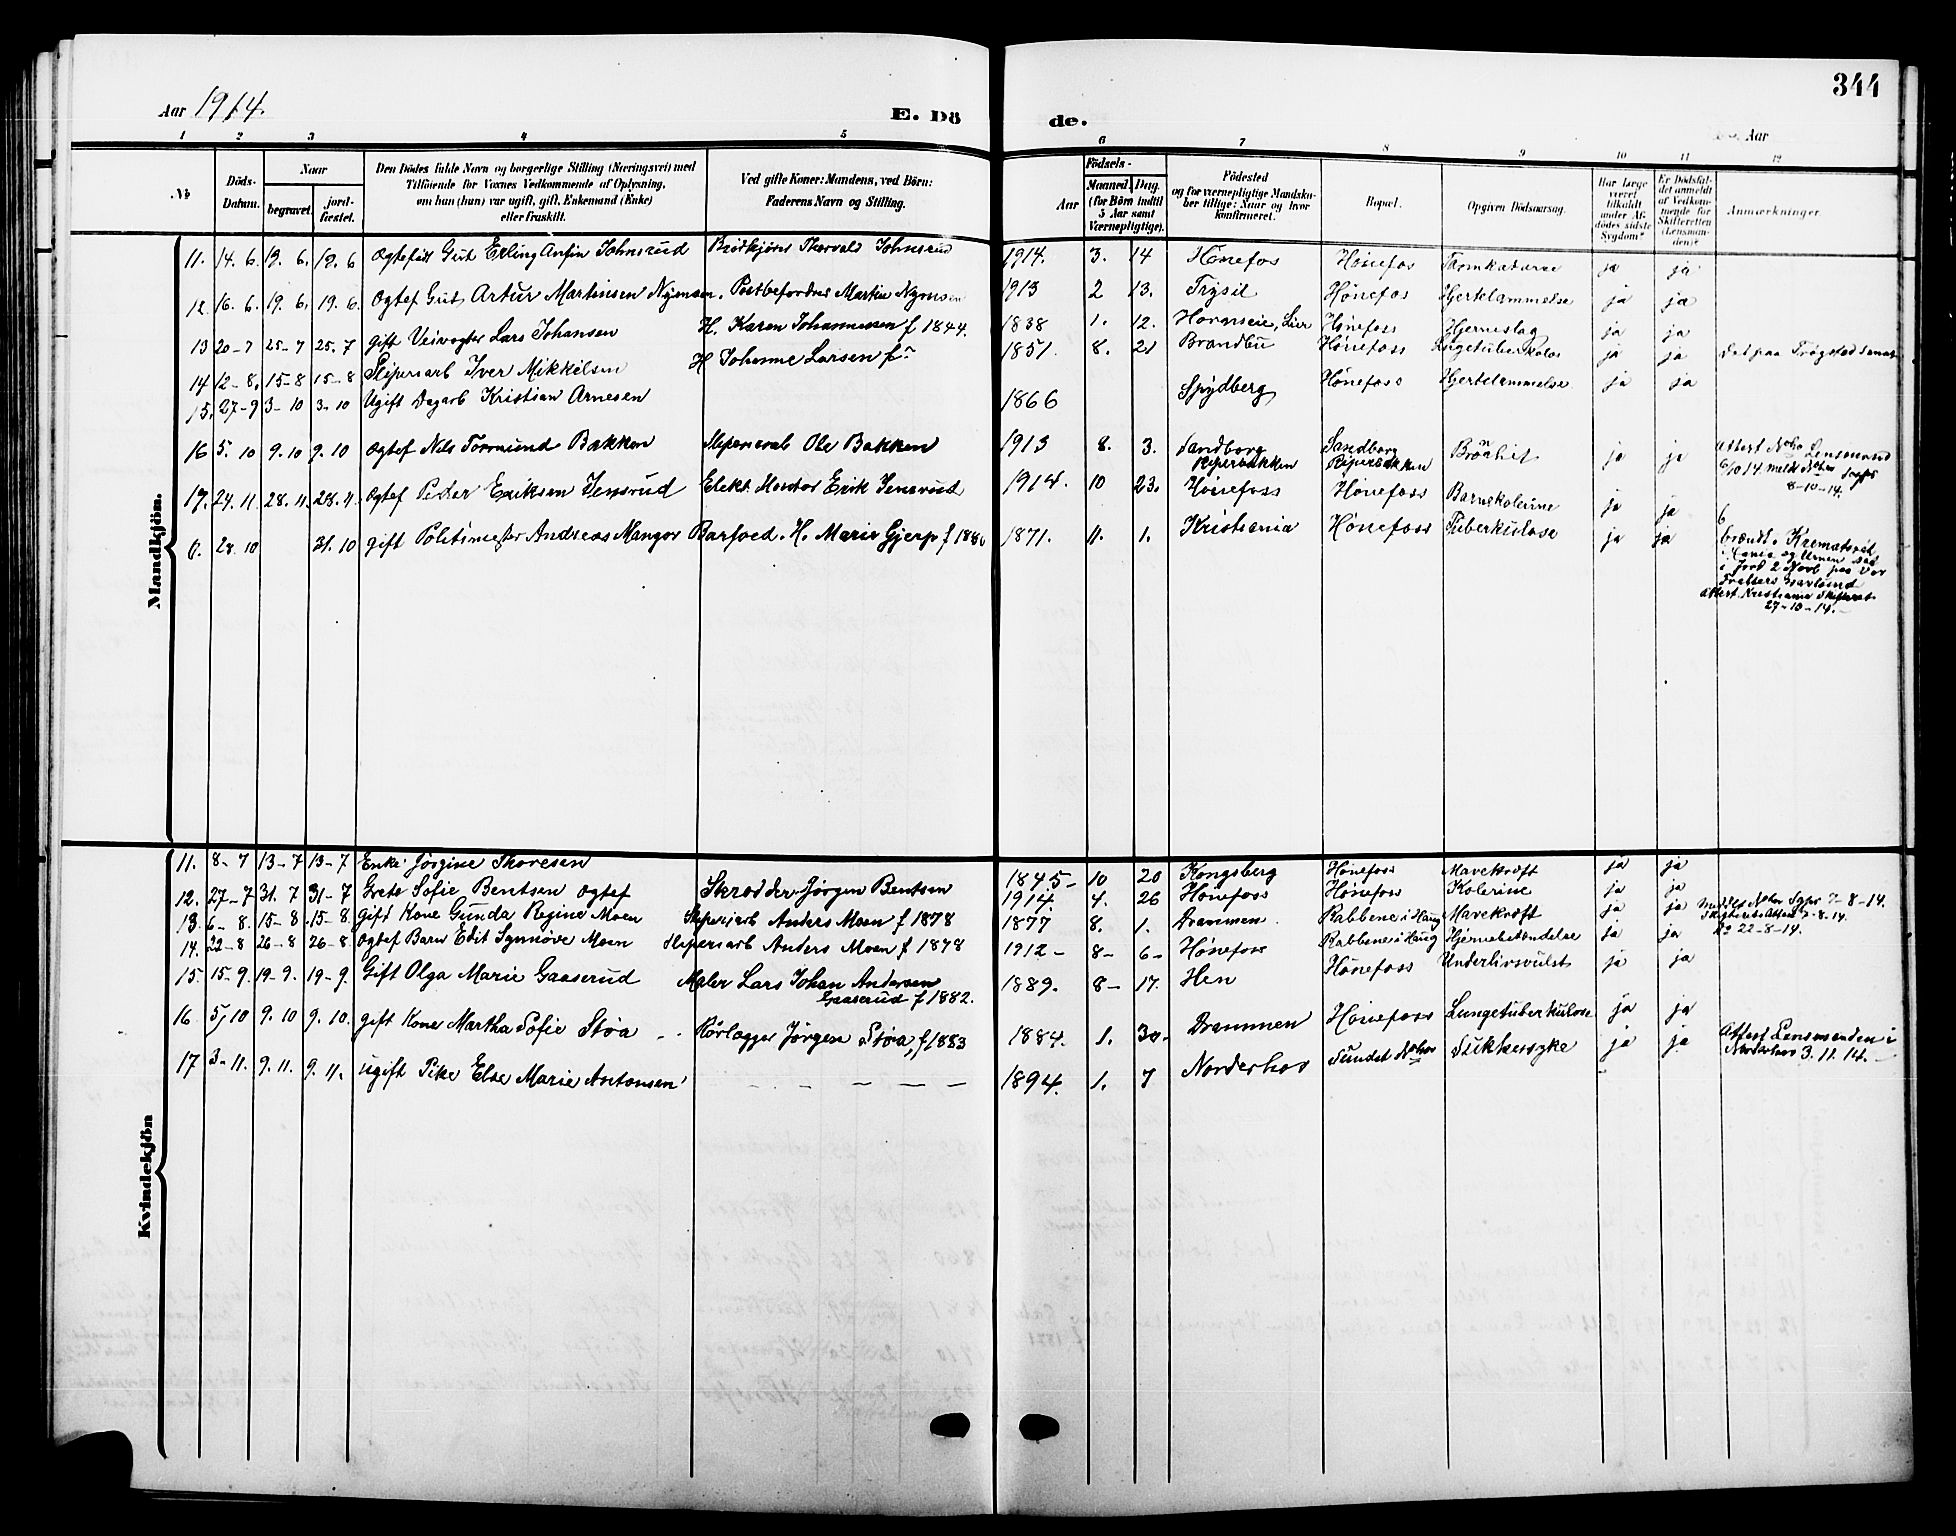 344
Aar 1914.
E. Dö de.
Aar
1 2 3 4 5 6 7 8 9 10 11 12
№
Döds-Datum.
Naar
begravet.
jord-fæstet.
Den Dödes fulde Navn og borgerlige Stilling (Næringsvei) med
Tilföiende for Voxnes Vedkommende af Oplysning,
om han (hun) var ugift, gift, Enkemand (Enke)
eller fraskilt.
Ved gifte Koner: Mandens, ved Börn:
Faderens Navn og Stilling.
Födsels-
Aar
Maaned. Dag.
(for Börn indtil
5 Aar samt
Værnepligtige).
Födested
og for værnepligtige Mandskaber tillige: Naar og hvor
konfirmeret.
Bopæl.
Opgiven Dödsaarsag.
Har læge
været
tilkaldt
under Afdödes sidste
Sygdom?
Er Dödsfaldet anmeldt
af Vedkommende for
Skifteretten
(Lensmanden)?
Anmærkninger
Mandkjön.
11. 14. 6. 19. 6. 19. 6 Ogtefödt Gut Erling Anfin Johnsrud Brödkjörer Thorvald Johnsrud 1914. 3. 14 Hönefos Hönefos Tarmkatarre ja ja
12. 16. 6. 19. 6. 19. 6. Ogtef Gut, Artur Martinsen Nymoen. Postbefordrer Martin Nymoen 1913 2 13. Trysil Hönefos Hjertelammelse ja ja
13 20-7 25-7 25. 7 gift Veivogter Lars Johansen H. Karen Johannessen f 1844. 1838 1. 12. Hornseie, Lier Hönefoss Hjerneslag ja ja
14 12-8. 15-8 15-8 Sliperiarb Iver Mikkelsen H Johanne Larsen f 1851. 8. 21 Brandbu Hönefoss Lungetuberkulos ja ja Död paa
15. 27-9 3-10 3-10 Ugift Dagarb Kristian Arnesen 1866 Spydberg Hönefoss Hjertelammelse ja ja
16 5. 10 9. 10 9. 10 Ogtef Nils Tormund Bakken Sliperiarb Ole Bakken 1913 8. 3. Sandborg Riperbakken Sandborg Riperbakken Bronkit ja ja Attest Noho Lensmand
6/10 14. meldt
8-10-14.
17. 24. 11. 28. 11. 28. 11. Ogtef Peder Eriksen Jensrud Elekt. Montör Erik Jensrud 1914. 10 23. Hönefoss Hönefoss Barnekolerine ja ja
0. 28. 10 31. 10 gift Politimester Andreas Mangor Barfoed. H. Marie Gjerp f 1880 1871. 11. 1. Kristiania Hönefoss Tuberkulose ja ja
brændt i Krematoriet
i Xania og Urnen sat
i Jord 2 Novb paa Vor
Frelsers Gravlund
attest Kristiania Skifteret
27-10-14.
Kvindekjön
11. 8-7 13-7 13-7 Enke Jörgine Thoresen 1845- 10 20 Kongsberg Hönefoss Mavekræft ja ja
12. 27-7 31. 7 31-7 Grete Sofie Bentsen ogtef Skrædder Jörgen Bentsen 1914 4. 26 Hönefoss Hönefoss Kolerine ja ja
13. 6-8 15-8. 15-8. gift Kone Gunda Regine Moen Sliperiarb Anders Moen f 1878 1877 8. 1. Drammen Rabbene i Haug Mavekræft ja ja 7-8-14.
14. 22-8 26-8 26-8 Ogtef Barn Edit Synnöve Moen Sliperiarb Anders Moen f 1878 1912- 8- 6- Hönefoss Rabbene i Haug Hjernebetændelse ja ja 22-8-14.
15. 15-9. 19-9. 19-9. Gift Olga Marie Gaaserud Maler Lars Johan Andersen Gaaserud f 1882. 1889. 8- 17. Hen Hönefoss Underlivsvulst ja ja
16 5/10 9. 10 9. 10. gift Kone Martha Sofie Stöa Rörlægger Jörgen Stöa, f 1883 1884. 1. 30. Drammen Hönefoss Lungetuberkulose ja ja
17 3-11. 9. 11. 9. 11. ugift Pike Else Marie Antonsen 1894. 1. 7 Norderhov Sundet Nohov Sukkersyke ja ja Attest Lensmanden i
Norderhov 3. 11. 14.